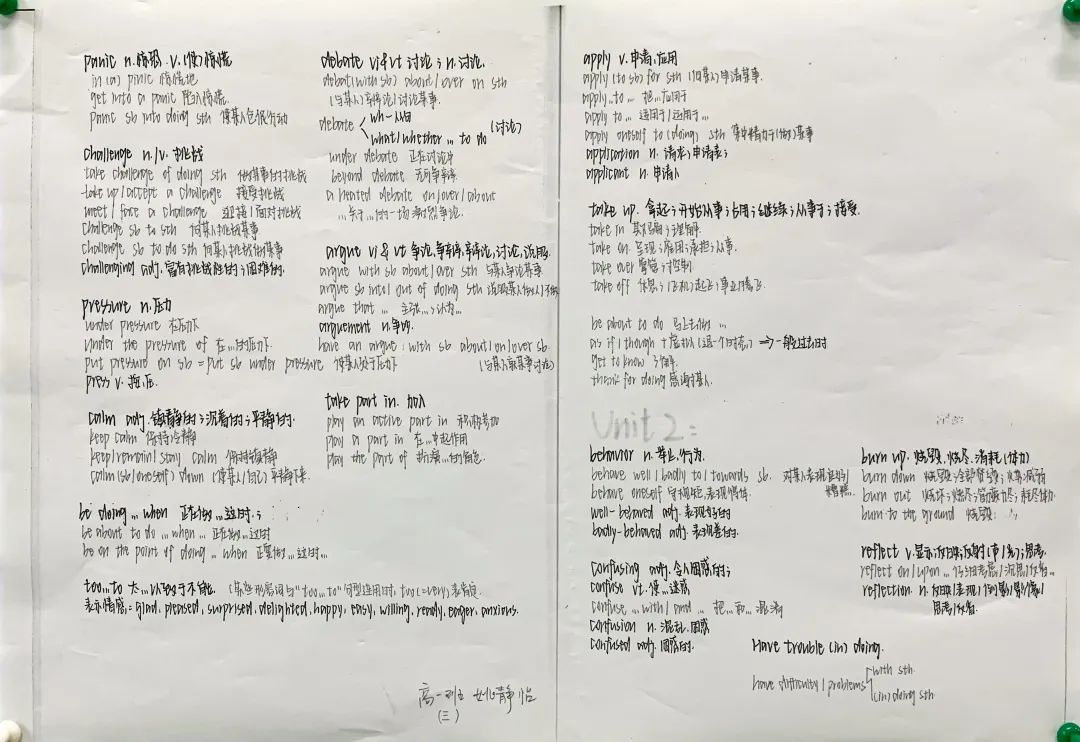 panic n.惊恐. v.(使)惊慌
in (a) pinic 惊慌地
get into a panic 陷入惊慌.
panic sb into doing sth 使某人仓促行动
challenge n./v. 挑战
take challenge of doing sth 做某事的挑战
take up/accept a challenge 接受挑战
meet/face a challenge 迎接/面对挑战
challenge sb to sth 向某人挑战某事
challenge sb to do sth 向某人挑战做某事
challenging adj. 富有挑战性的;困难的.
pressure n.压力
under pressure 在压力下
under the pressure of 在...的压力下.
put pressure on sb = put sb under pressure 使某人处于压力下
press v. 按,压.
calm adj. 镇静的;沉着的;平静的.
keep calm 保持冷静
keep/remain/stay calm 保持镇静
calm (sb/oneself) down (使某人/自己)平静下来.
be doing ... when 正在做...这时.;
be about to do ... when ... 正在做...这时
be on the point of doing ... when 正要做...这时...
too...to 太...以致于不能. (某些形容词与"too...to"句型连用时, too(=very)表肯定.
表示情感:= glad, pleased, surprised, delighted, happy, easy, willing, ready, eager, anxious.
debate vi & vt 讨论; n.讨论.
debat(with sb) about/over on sth
(与某人)辩论/讨论某事.
debate wh-从句
what/whether ... to do (讨论)
under debate 正在讨论中
beyond debate 无可争辩.
a heated debate on/over/about
...关于...的一场激烈争论.
argue vi & vt 争论,争辩,辩论,讨论,说服.
argue with sb about/over sth 与某人争论某事.
argue sb into/out of doing sth 说服某人做(从)/不做
argue that ... 主张...;认为...
arguement n.争吵.
have an argue : with sb about/on/over sb.
(与某人就某事讨论)
take part in. 加入
play an active part in 积极参加
play a part in 在...中起作用
play the part of 扮演...的角色.
高一 班 姚静怡
(三)
apply v.申请,应用
apply (to sb) for sth (向某人)申请某事.
apply..to... 把...应用于
apply to... 适用于/运用于...
apply oneself to (doing) sth 集中精力于(做)某事
application n. 请求;申请表;
applicant n. 申请人
take up. 拿起;开始从事;占用;继续;从事于;接受.
take in 欺骗;理解.
take on 呈现;雇用;承担;从事.
take over 接管;控制.
take off 休息;(飞机)起飞;事业腾飞.
be about to do 马上去做 ...
as if/though +虚拟(退一个时态) ⇒ 一般过去时
get to know 了解.
thank for doing 感谢某人.
Unit 2:
behavior n. 举止,行为.
behave well/badly to/towards sb. 对某人表现更好/糟糕...
behave oneself 守规矩,表现得体.
well-behaved adj. 表现好的
badly-behaved adj. 表现差的.
confusing adj. 令人困惑的;
confuse vt. 使...迷惑
confuse ...with/and ... 把...和...混淆
confusion n. 混乱.困惑
confused adj. 困惑的.
burn up. 烧毁,烧尽.消耗(体力)
burn down 烧毁;全部焚毁;火势减弱
burn out 烧坏;燃尽;筋疲力尽;耗尽体力.
burn to the ground 烧毁;
reflect v.显示;反映;反射(声/光);思考.
reflect on/upon ... 仔细考虑/沉思/反省..
reflection n. 反映/表现/倒影/影像/
思考/反省.
Have trouble (in) doing.
have difficulty/problems with sth.
(in) doing sth